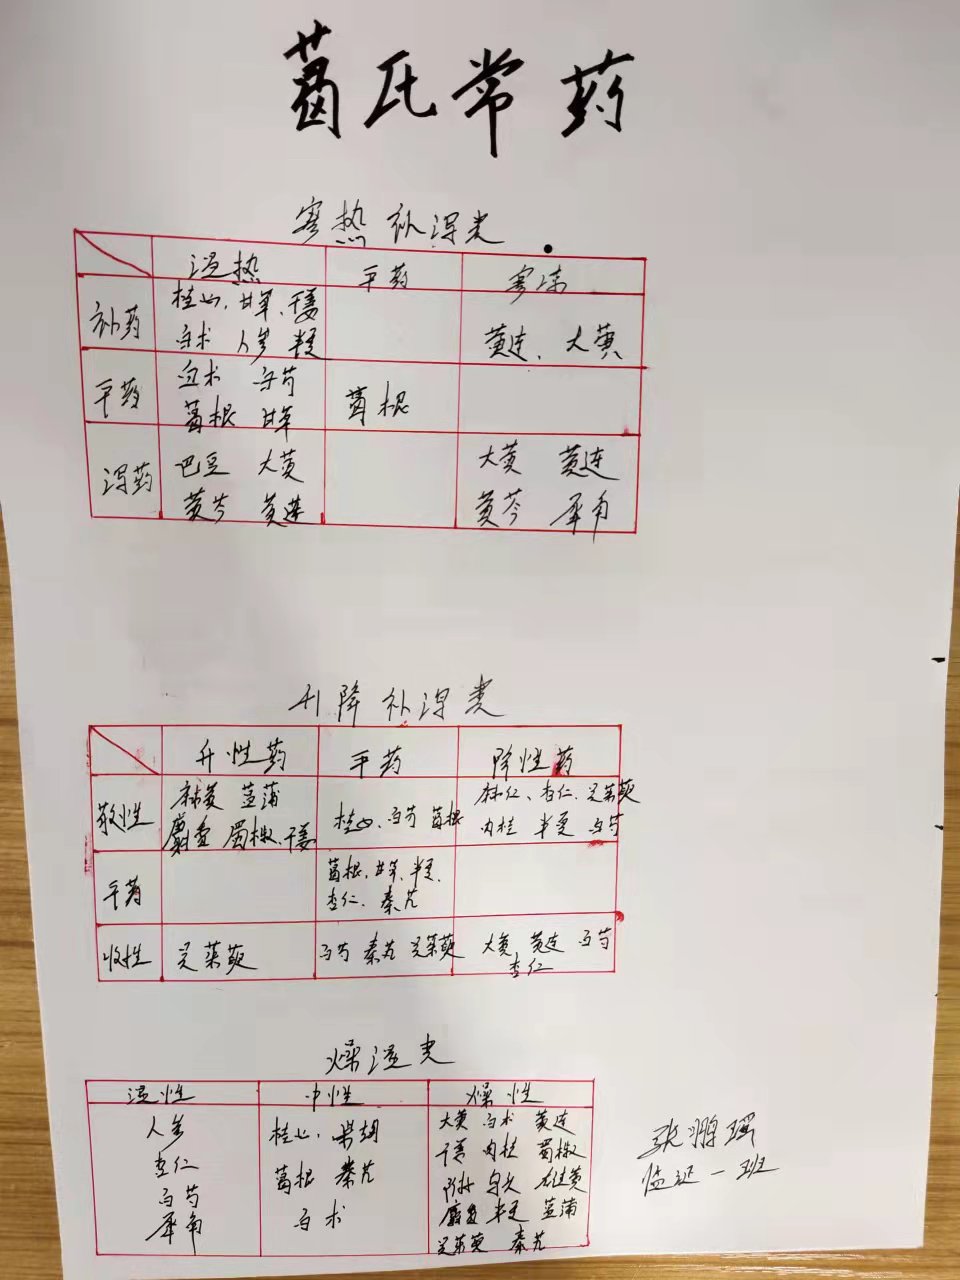 葛氏常药
寒热补泻类
温热 平药 寒凉
补药
桂心、甘草、干姜
白术 人参 半夏
黄连、大黄
平药
白术 白芍
葛根 甘草
葛根
泻药
巴豆 大黄
黄芩 黄连
大黄 黄连
黄芩 犀角
升降补泻类
升性药 平药 降性药
散性
麻黄 菖蒲
麝香 蜀椒、干姜
桂心、白芍 葛根
麻仁、杏仁、吴茱萸
肉桂 半夏 白芍
平药
葛根、甘草、半夏、
杏仁、秦艽
收性
吴茱萸
白芍 秦艽 吴茱萸
大黄 黄连 白芍
杏仁
燥湿类
湿性 中性 燥性
人参
杏仁
白芍
犀角
桂心、柴胡
葛根 秦艽
白术
大黄 白术 黄连
干姜 肉桂 蜀椒
附子 乌头 雄黄
麝香 半夏 菖蒲
吴茱萸 秦艽
张鹏
一班